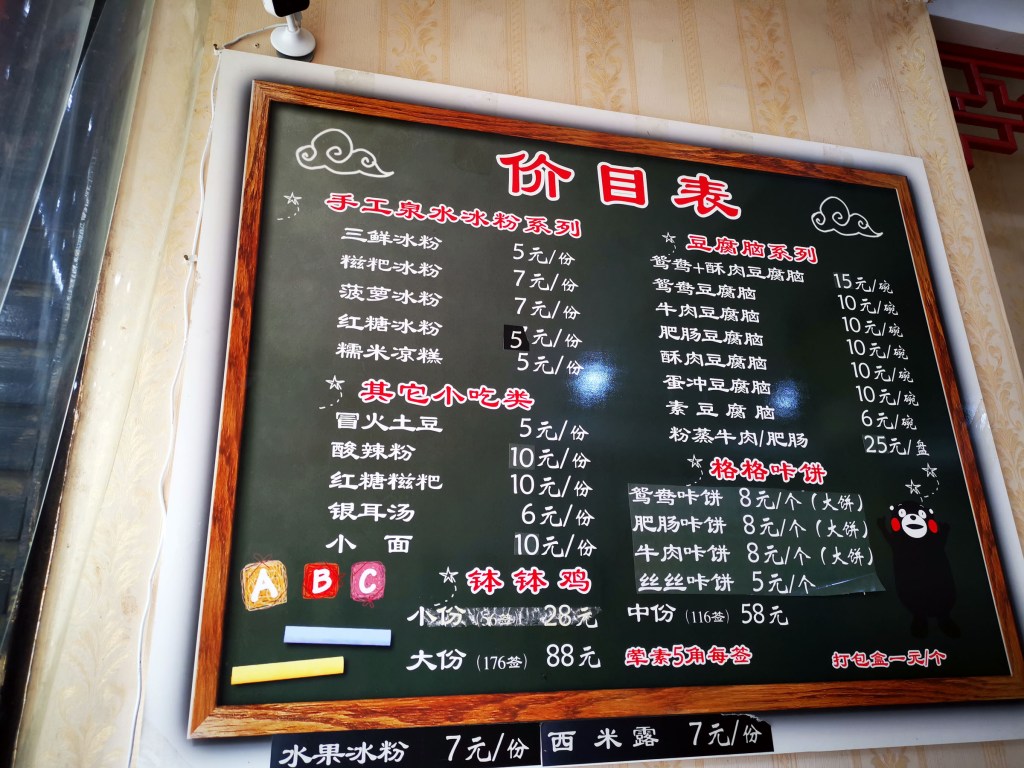 价目表
手工泉水冰粉系列
三鲜冰粉 5元/份
糍粑冰粉 7元/份
菠萝冰粉 7元/份
红糖冰粉 5元/份
糯米凉糕 5元/份
其它小吃类
冒火土豆 5元/份
酸辣粉 10元/份
红糖糍粑 10元/份
银耳汤 6元/份
小面 10元/份
豆腐脑系列
鸳鸯+酥肉豆腐脑 15元/碗
鸳鸯豆腐脑 10元/碗
牛肉豆腐脑 10元/碗
肥肠豆腐脑 10元/碗
酥肉豆腐脑 10元/碗
蛋冲豆腐脑 10元/碗
素豆腐脑 6元/碗
粉蒸牛肉/肥肠 25元/盘
格格咔饼
鸳鸯咔饼 8元/个(大饼)
肥肠咔饼 8元/个(大饼)
牛肉咔饼 8元/个(大饼)
丝丝咔饼 5元/个
A B C
钵钵鸡
小份(56签) 28元 中份(116签) 58元
大份(176签) 88元 荤素5角每签 打包盒一元/个
水果冰粉 7元/份 西米露 7元/份